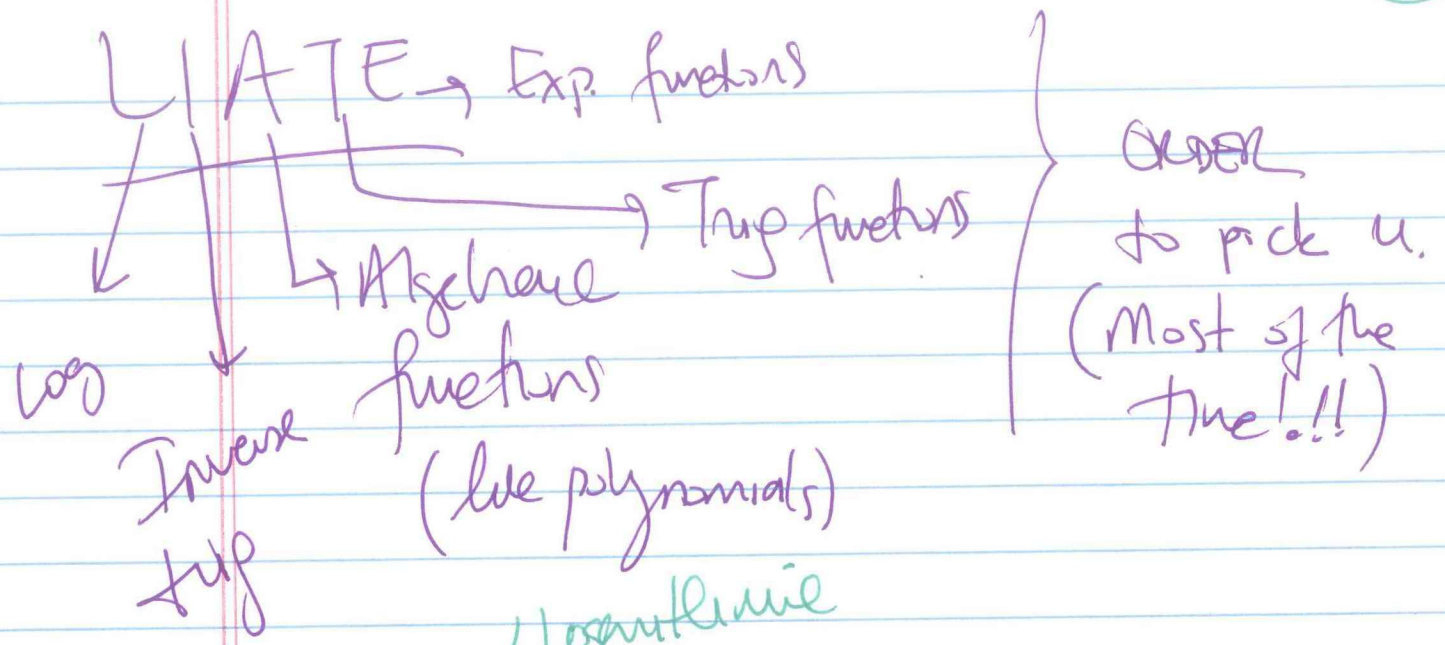 LIATE → Exp. functions
→ Trig functions
→ Algebraic
functions
(like polynomials)
Log
Inverse
trig
ORDER
to pick u.
(Most of the
time!!!)